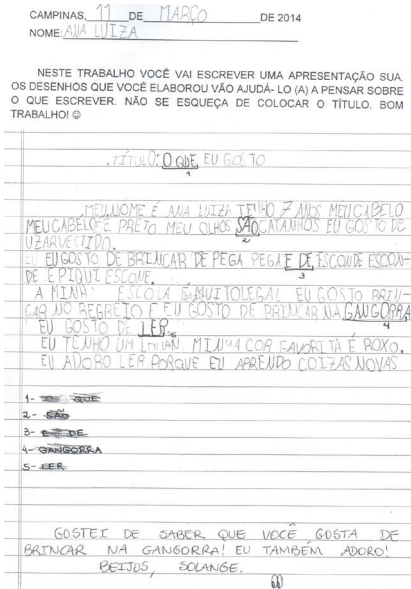 CAMPINAS, 11 DE MARÇO DE 2014
NOME: ANA LUIZA
NESTE TRABALHO VOCÊ VAI ESCREVER UMA APRESENTAÇÃO SUA.
OS DESENHOS QUE VOCÊ ELABOROU VÃO AJUDÁ- LO (A) A PENSAR SOBRE
O QUE ESCREVER. NÃO SE ESQUEÇA DE COLOCAR O TÍTULO. BOM
TRABALHO! ☺
TÍTULO: O QUE EU GOSTO
1
MEU NOME É ANA LUIZA TENHO 7 ANOS MEU CABELO
MEU CABELO É PRETO MEU OLHOS SÃO CATANHOS EU GOSTO DE
2
UZAR VESTIDO.
EU EU GOSTO DE BRINCAR DE PEGA PEGA E DE ESCONDE ESCON-
3
DE E PIQUI ESCONE.
A MINHA ESCOLA É MUITO LEGAL EU GOSTO BRIN-
CAR NO REGREIO E EU GOSTO DE BRINCAR NA GANGORRA
4
EU GOSTO DE LER.
5
EU TENHO UM MINHA COR FAVORITA É ROXO.
EU ADORO LER PORQUE EU APRENDO COIZAS NOVAS
1- O QUE
2- SÃO
3- E DE
4- GANGORRA
5- LER
GOSTEI DE SABER QUE VOCÊ GOSTA DE
BRINCAR NA GANGORRA! EU TAMBÉM ADORO!
BEIJOS, SOLANGE.